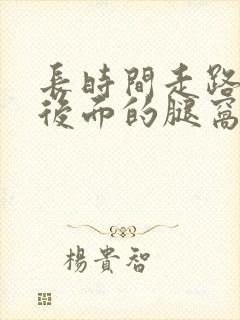 長時間走路
後面的腿窩
楊貴智